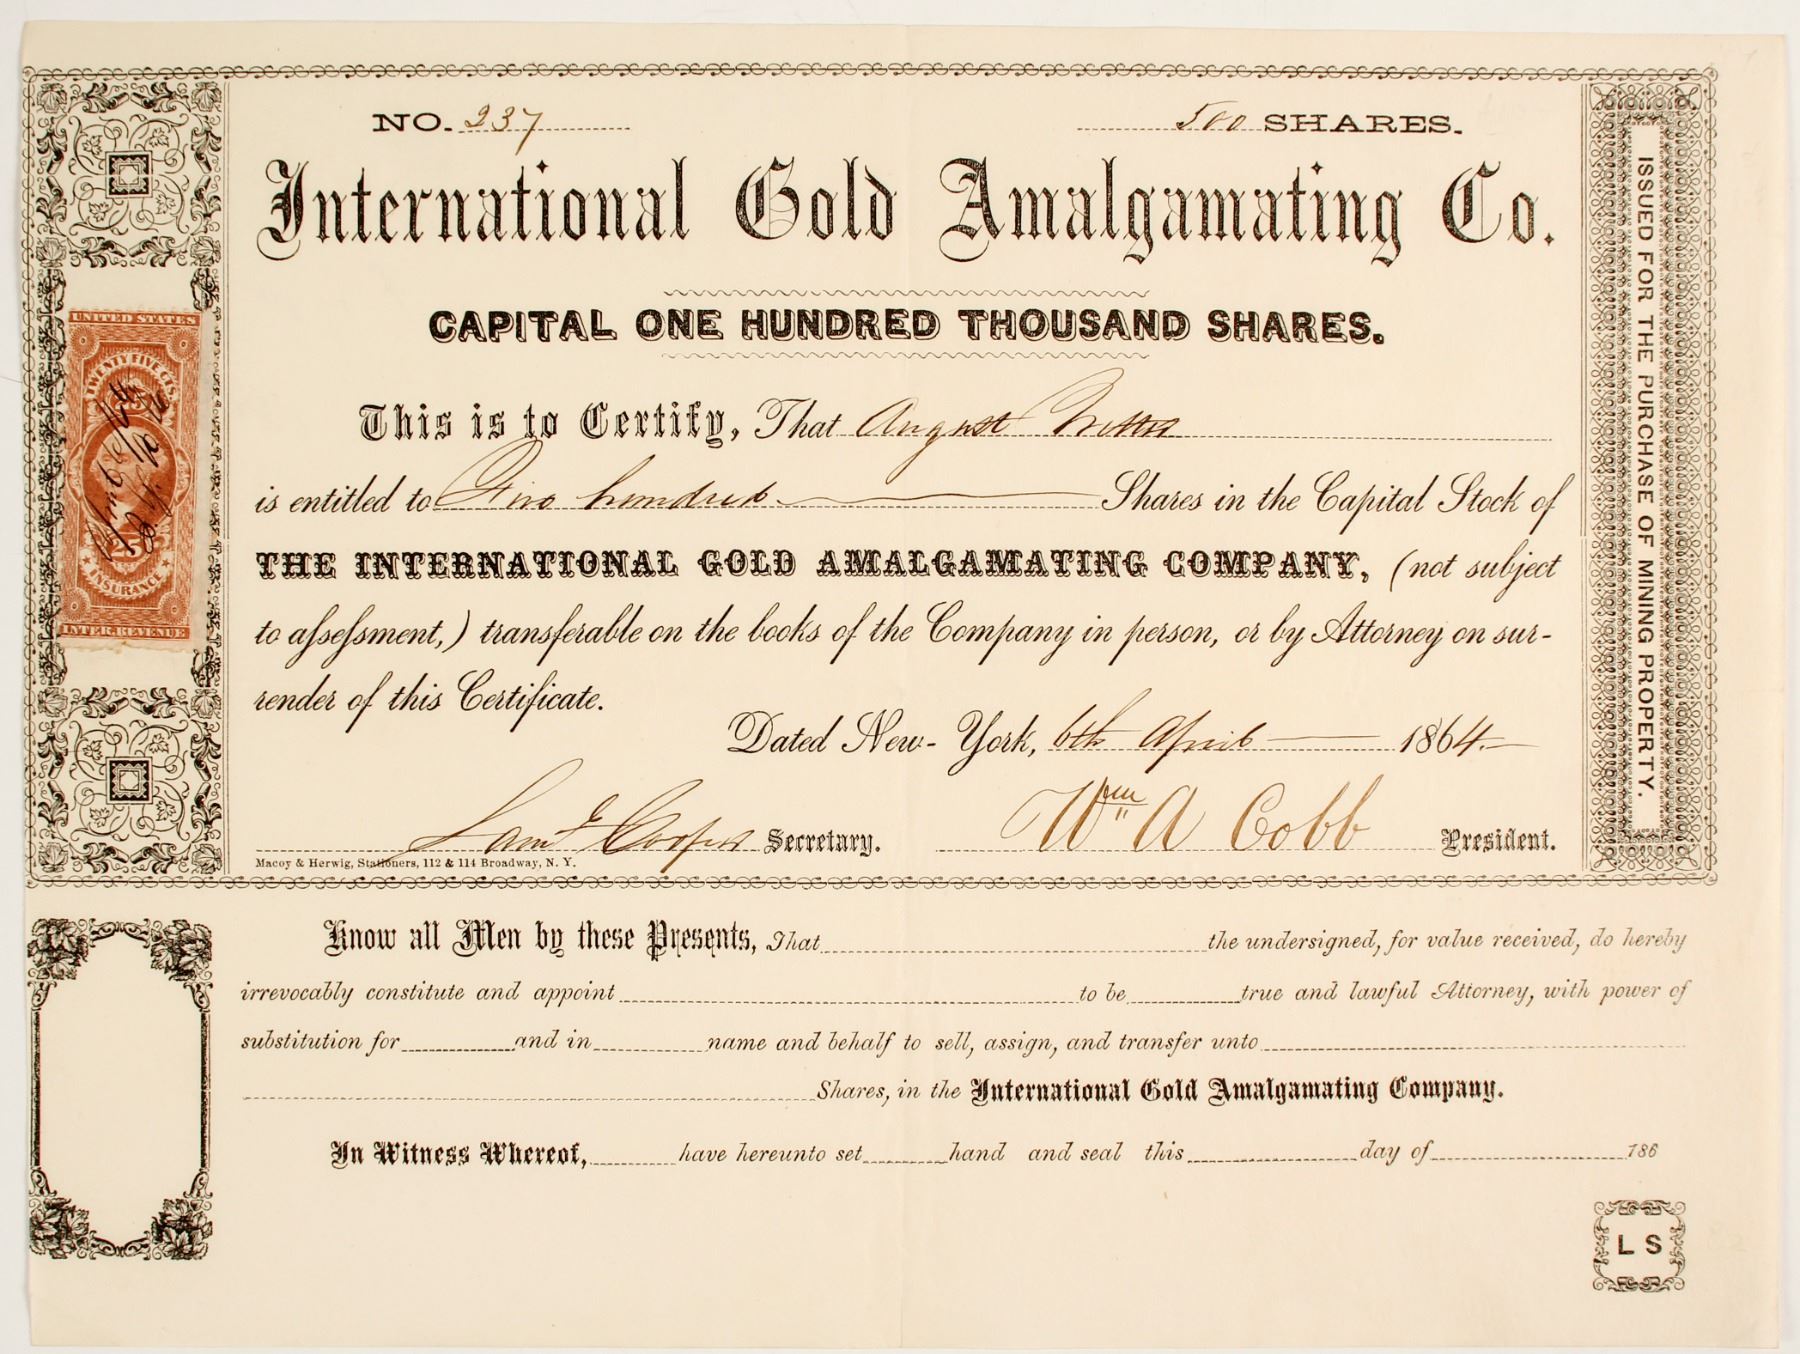 NO. 237
500 SHARES.
International Gold Amalgamating Co.
CAPITAL ONE HUNDRED THOUSAND SHARES.
This is to Certify, That August
is entitled to Five hundred Shares in the Capital Stock of
THE INTERNATIONAL GOLD AMALGAMATING COMPANY, (not subject
to assessment,) transferable on the books of the Company in person, or by Attorney on sur-
render of this Certificate.
Dated New-York, 6th April 1864.
Saml Cooper Secretary. Wm A Cobb President.
Macoy & Herwig, Stationers, 112 & 114 Broadway, N. Y.
ISSUED FOR THE PURCHASE OF MINING PROPERTY.
UNITED STATES
TWENTY FIVE CTS.
INSURANCE
INTER. REVENUE
Know all Men by these Presents, That the undersigned, for value received, do hereby
irrevocably constitute and appoint to be true and lawful Attorney, with power of
substitution for and in name and behalf to sell, assign, and transfer unto
Shares, in the International Gold Amalgamating Company.
In Witness Whereof, have hereunto set hand and seal this day of 186
L S